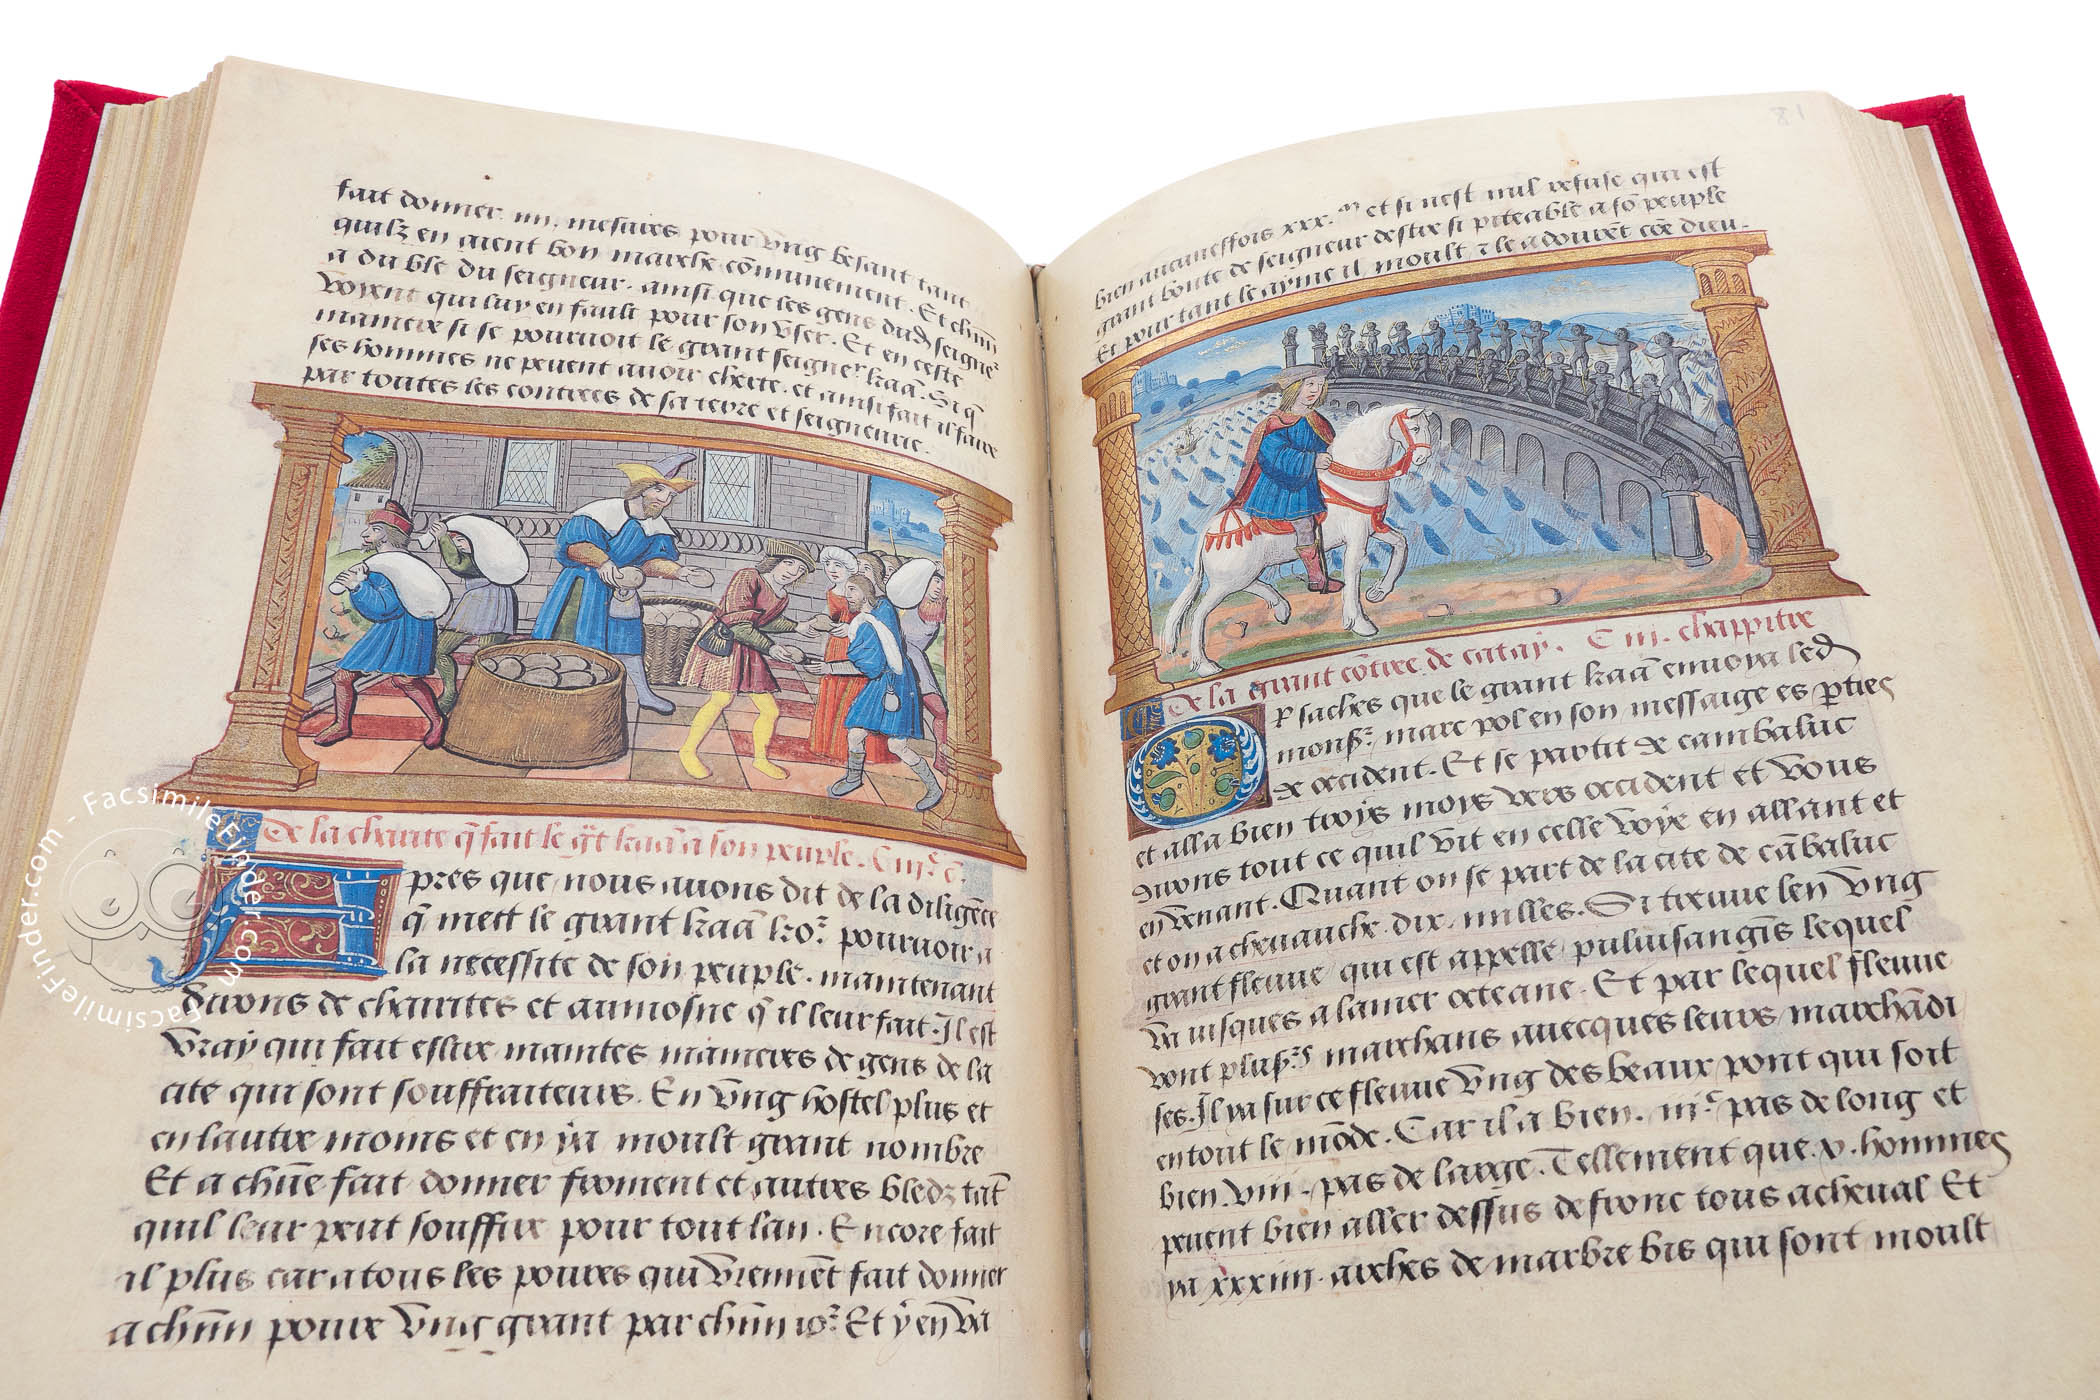 fait donner. iiii. mesures pour ung besant tant
quilz en aient bon marche cõmunement. Et chũn
a du ble du seigneur. ainsi que les gens dud seigneᵣ
voient qui luy en fault pour son user. Et en ceste
maniere si se pourvoit le grant seigneᵣ kaã. Si q̃
ses hommes ne pevent avoir cherte. et ainsi fait il faire
par toutes les contrees de sa terre et seigneurie.
De la charite q̃ fait le grt kaã a son peuple.
Apres que nous avons dit de la diligẽce
q̃ mett le grant kaã poᵣ pourvoir a
la necessite de son peuple. maintenant
dirons de charites et aumosne q̃ il leur fait. Il est
vray qui fait eslire maintes manieres de gens de la
cite qui sont souffraiteurs. En ung hostel plus et
en lautre moins et en ya moult grant nombre
Et a chũe fait donner froment et autres bledz tãt
quil leur peut souffire pour tout lan. Encore fait
il plus car a tous les povres qui viennẽt fait donner
a chũn povre ung grant par chũn ioᵣ. Et y en va
bien aucuneffois xxx.ᵐ et si nest nul refuse qui est
grant bonte de seigneur destre si piteable a sõ peuple
Et pour tant le ayme il moult et le adourẽt cõe dieu.
De la grant cõtree de catay. C iii. chappitre
Or saches que le grant kaã envoya led
monsᵣ. marc pol en son messaige es p̃ties
de occident. Et se partit de cambaluc
et alla bien troys moys vers occident et vous
dirons tout ce quil vit en celle voye en allant et
en venant. Quant on se part de la cite de cãbaluc
et on a chevauche. dix. milles. Si treuve len ung
grant fleuve qui est appelle pulvisangis lequel
va iusques a la mer occeane. Et par lequel fleuve
vont plusᵣs marchans avecques leurs marchãdi
ses. Il ya sur ce fleuve ung des beaux pont qui soit
en tout le mõde. Car il a bien. iiiᶜ. pas de long et
bien. viii. pas de large. Tellement que. v. hommes
pevent bien aller dessus de fronc tous a cheval Et
ya xxxiiii. arches de marbre bis qui sont moult
FacsimileFinder.com - FacsimileFinder.com - FacsimileFinder.com